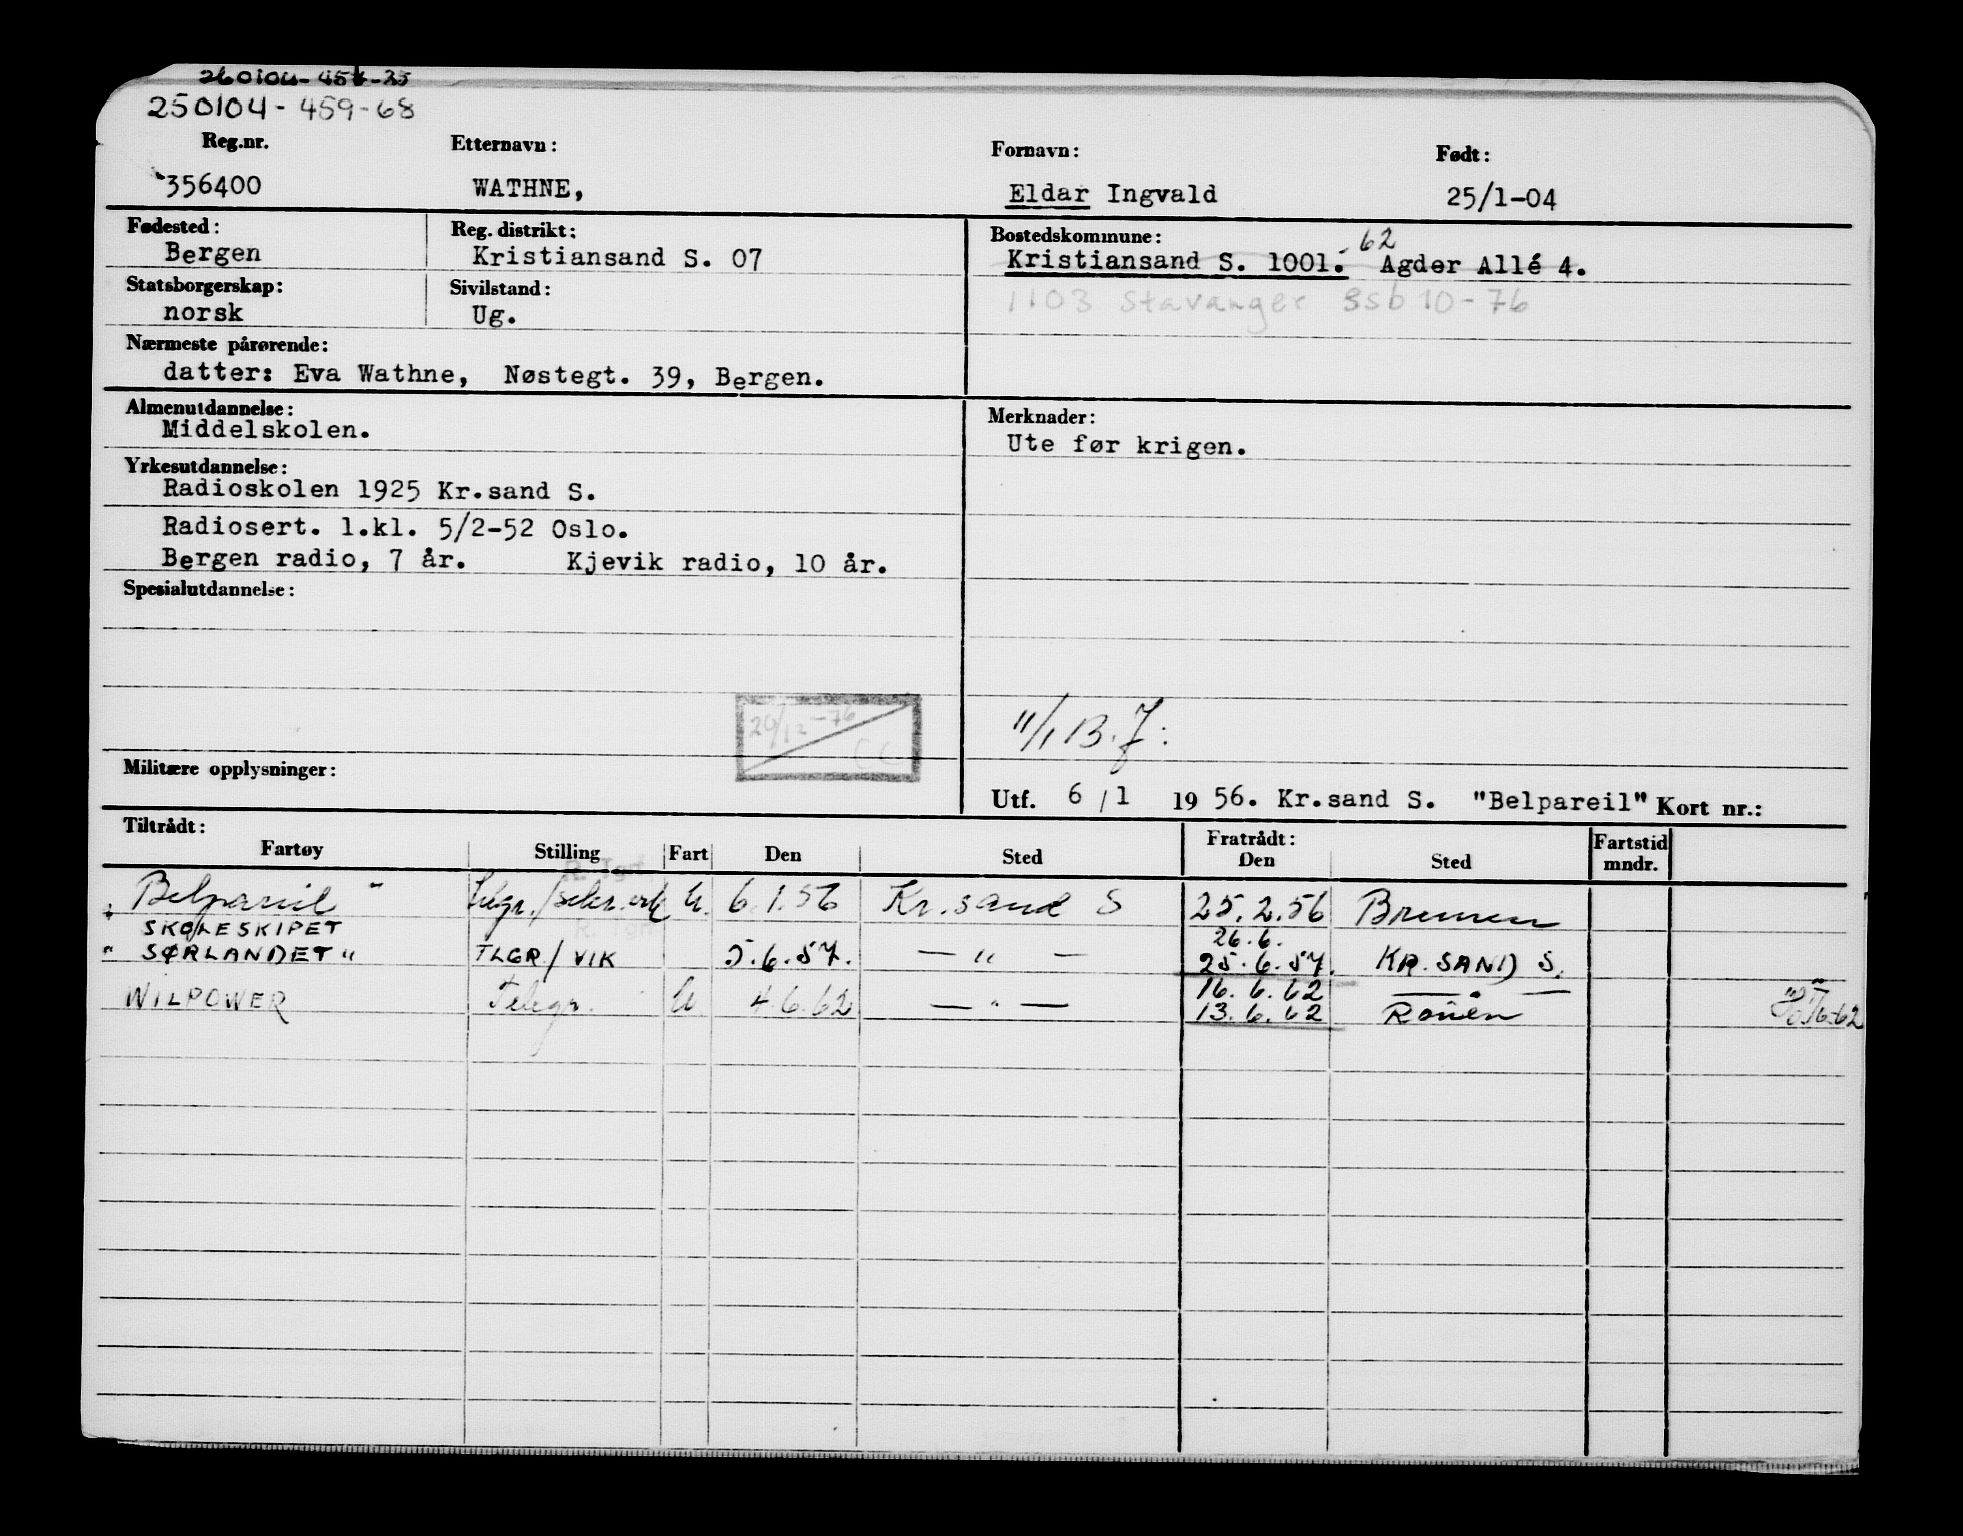 250104-459-68
Reg.nr. Etternavn: Fornavn: Født:
356400 WATHNE, Eldar Ingvald 25/1-04
Fødested: Reg. distrikt: Bostedskommune:
Bergen Kristiansand S. 07 Kristiansand S. 1001. 62 Agder Allé 4.
Statsborgerskap: Sivilstand:
norsk Ug. 1103 Stavanger 3sb 10-76
Nærmeste pårørende:
datter: Eva Wathne, Nøstegt. 39, Bergen.
Almenutdannelse: Merknader:
Middelskolen. Ute før krigen.
Yrkesutdannelse:
Radioskolen 1925 Kr.sand S.
Radiosert. 1.kl. 5/2-52 Oslo.
Bergen radio, 7 år. Kjevik radio, 10 år.
Spesialutdannelse:
-76 CC
11/1 B.J:
Militære opplysninger:
Utf. 6/1 1956. Kr.sand S. "Belpareil" Kort nr.:
Tiltrådt: Fratrådt: Fartstid
Fartøy Stilling Fart Den Sted Den Sted mndr.
"Belpareil" U. 6.1.56 Kr.sand S 25.2.56 Bremen
SKOLESKIPET 26.6.
"SØRLANDET" TLGR/VIK 5.6.57. — " — 25.6.57. KR.SAND S.
WILPOWER Telegr. U 4.6.62 — " — 16.6.62 — " —
13.6.62 Rouen